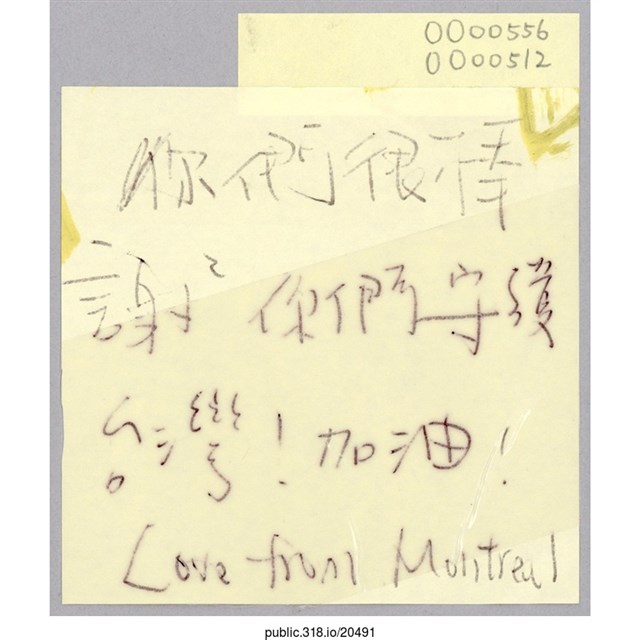 0000556
0000512
你們很棒
謝ミ 你們守護
台灣！加油！
Love from Montreal
public.318.io/20491